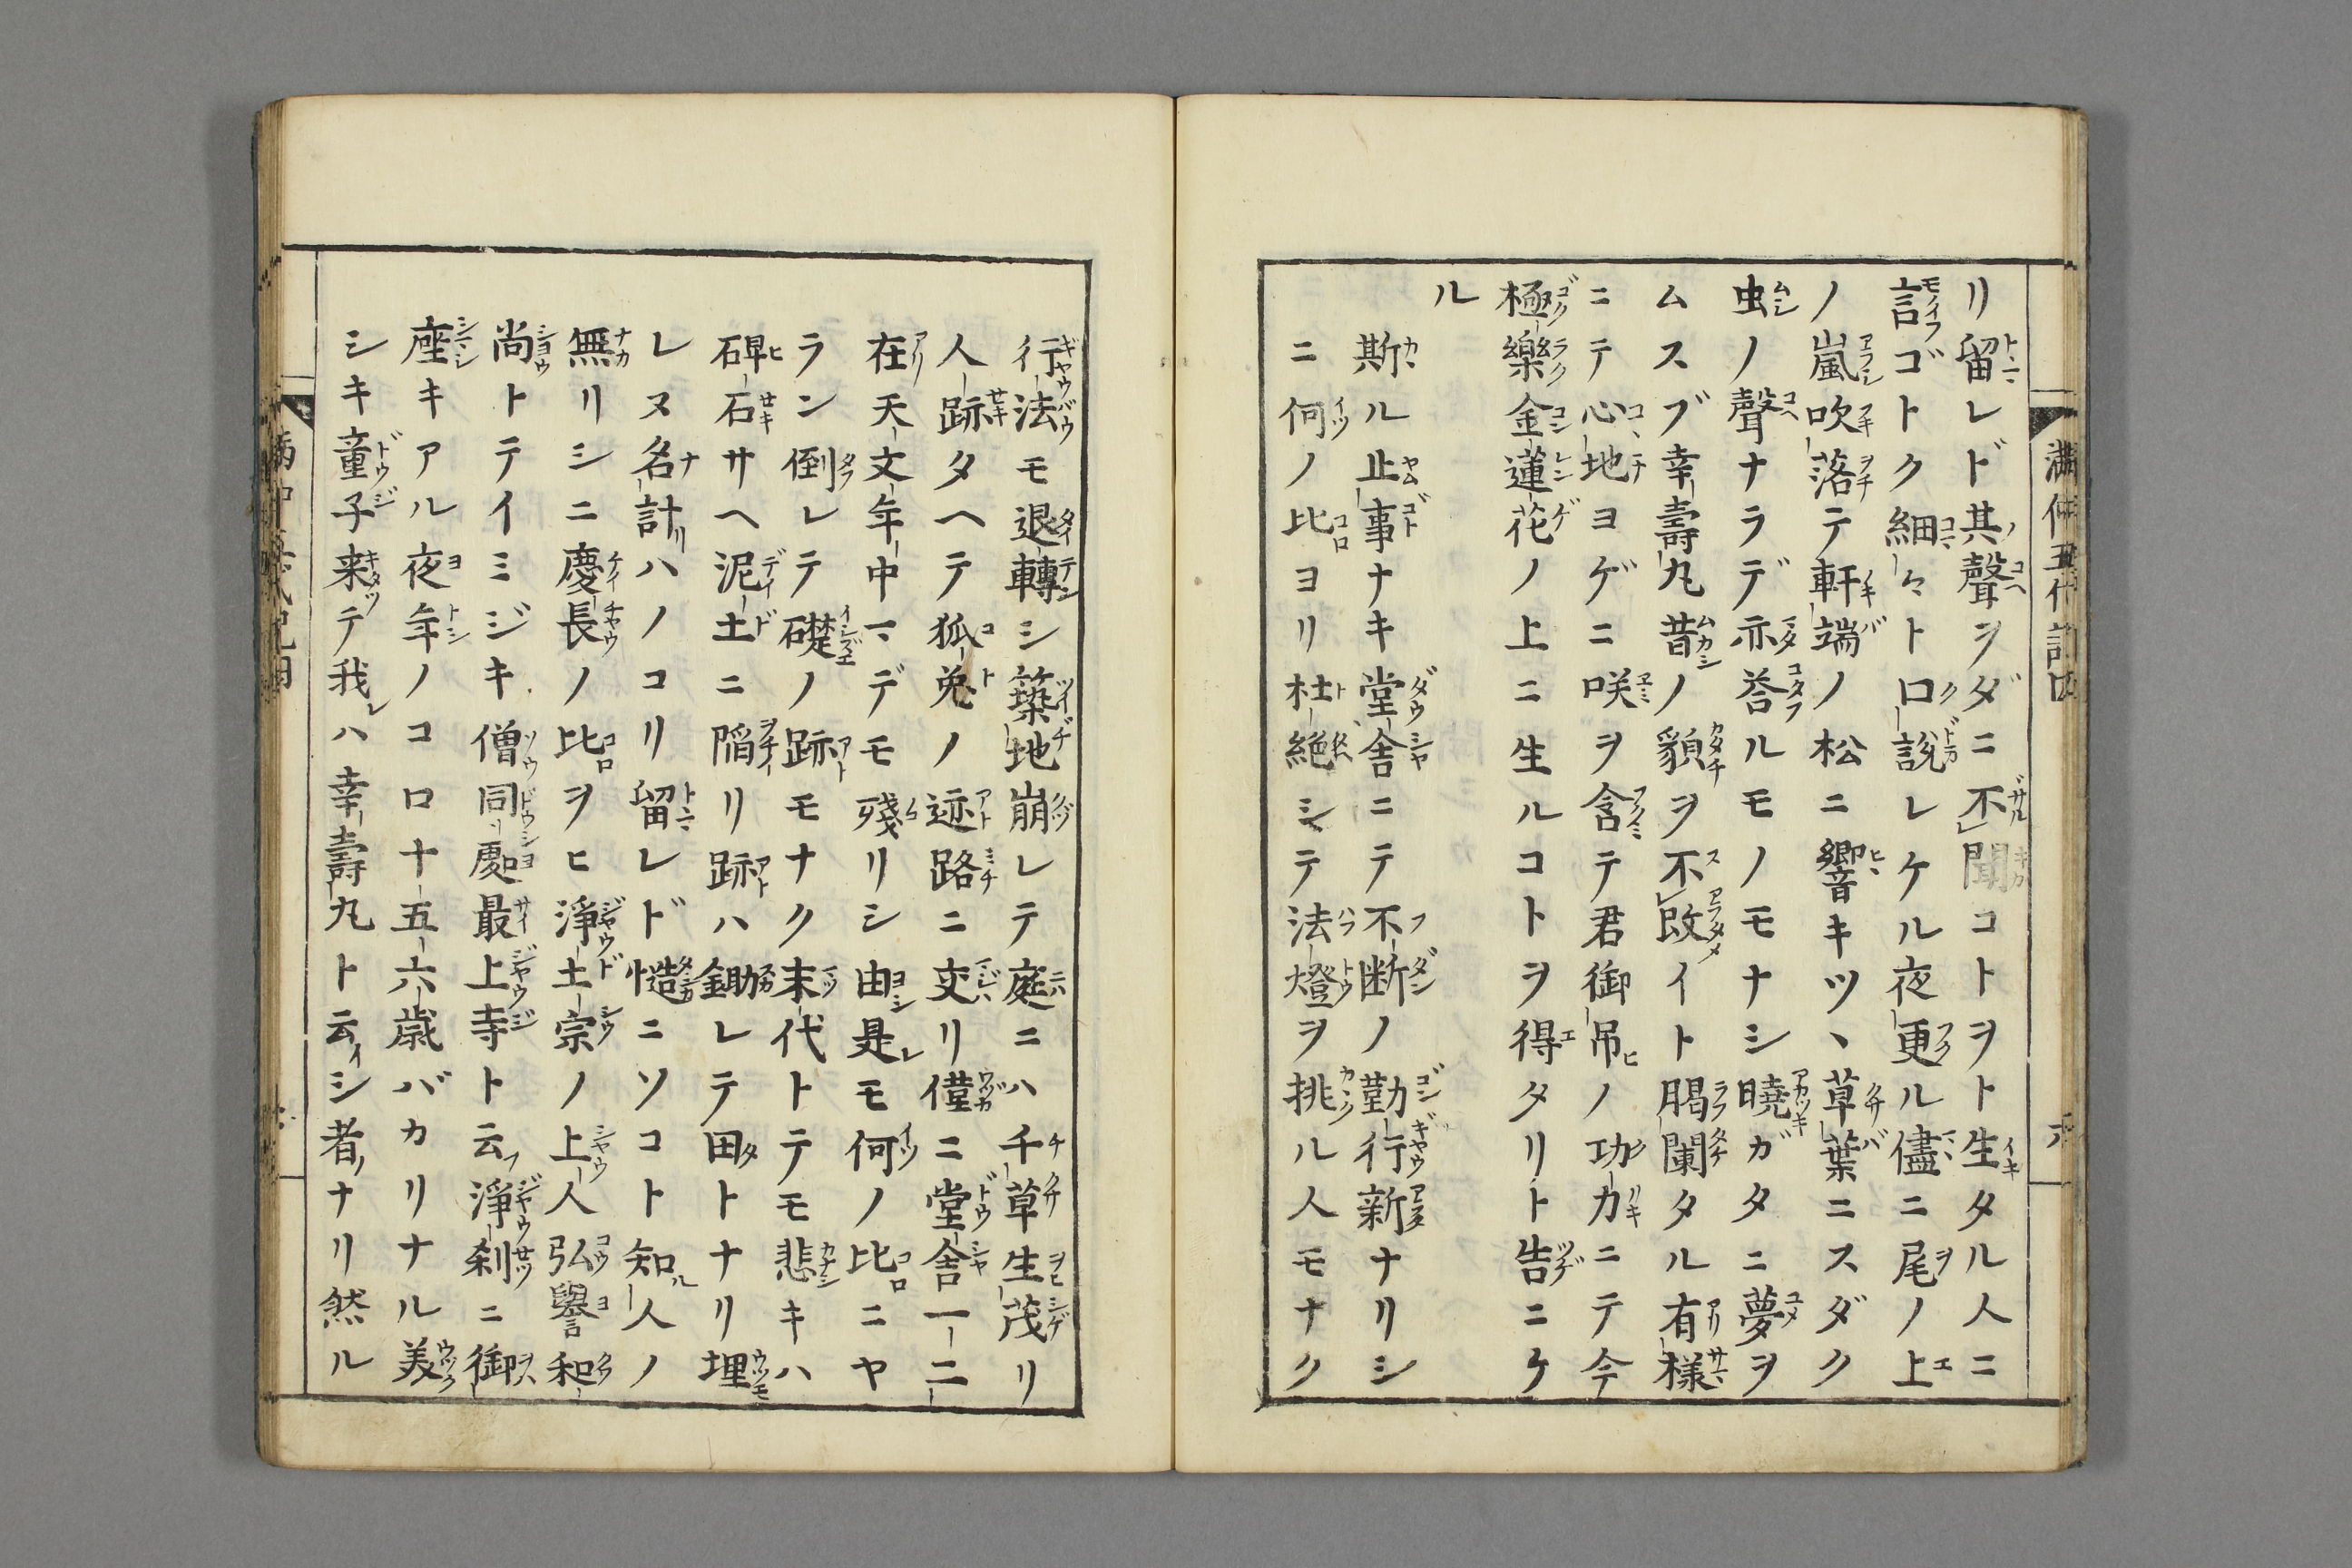 リ留レド其聲ヲダニ不聞コトヲト生タル人ニ
言ゴトク細々ト口説レケル夜更ル儘ニ尾ノ上
ノ嵐吹落テ軒端ノ松ニ響キツヽ草葉ニスダク
虫ノ聲ナラデ亦荅ルモノモナシ曉ガタニ夢ヲ
ムスブ幸壽丸昔ノ貌ヲ不改イト﨟闌タル有様
ニテ心地ヨゲニ咲ヲ含テ君御吊ノ功力ニテ今
極樂金蓮花ノ上ニ生ルコトヲ得タリト告ニケ
ル
斯ル止事ナキ堂舎ニテ不断ノ勤行新ナリシ
ニ何ノ比ヨリ杜絶シテ法燈ヲ挑ル人モナク
行法モ退轉シ築地崩レテ庭ニハ千草生茂リ
人跡タヘテ狐兎ノ迹路ニ交リ僅ニ堂舎一二
在天文年中マデモ殘リシ由是モ何ノ比ニヤ
ラン倒レテ礎ノ跡モナク末代トテモ悲キハ
碑石サヘ泥土ニ陷リ跡ハ鋤レテ田トナリ埋
レヌ名計ハノコリ留レド慥ニソコト知人ノ
無リシニ慶長ノ比ヲヒ淨土宗ノ上人弘譽和
尚トテイミジキ僧同處最上寺ト云淨刹ニ御
座キアル夜年ノコロ十五六歳バカリナル美
シキ童子来テ我ハ幸壽丸ト云シ者ナリ然ル